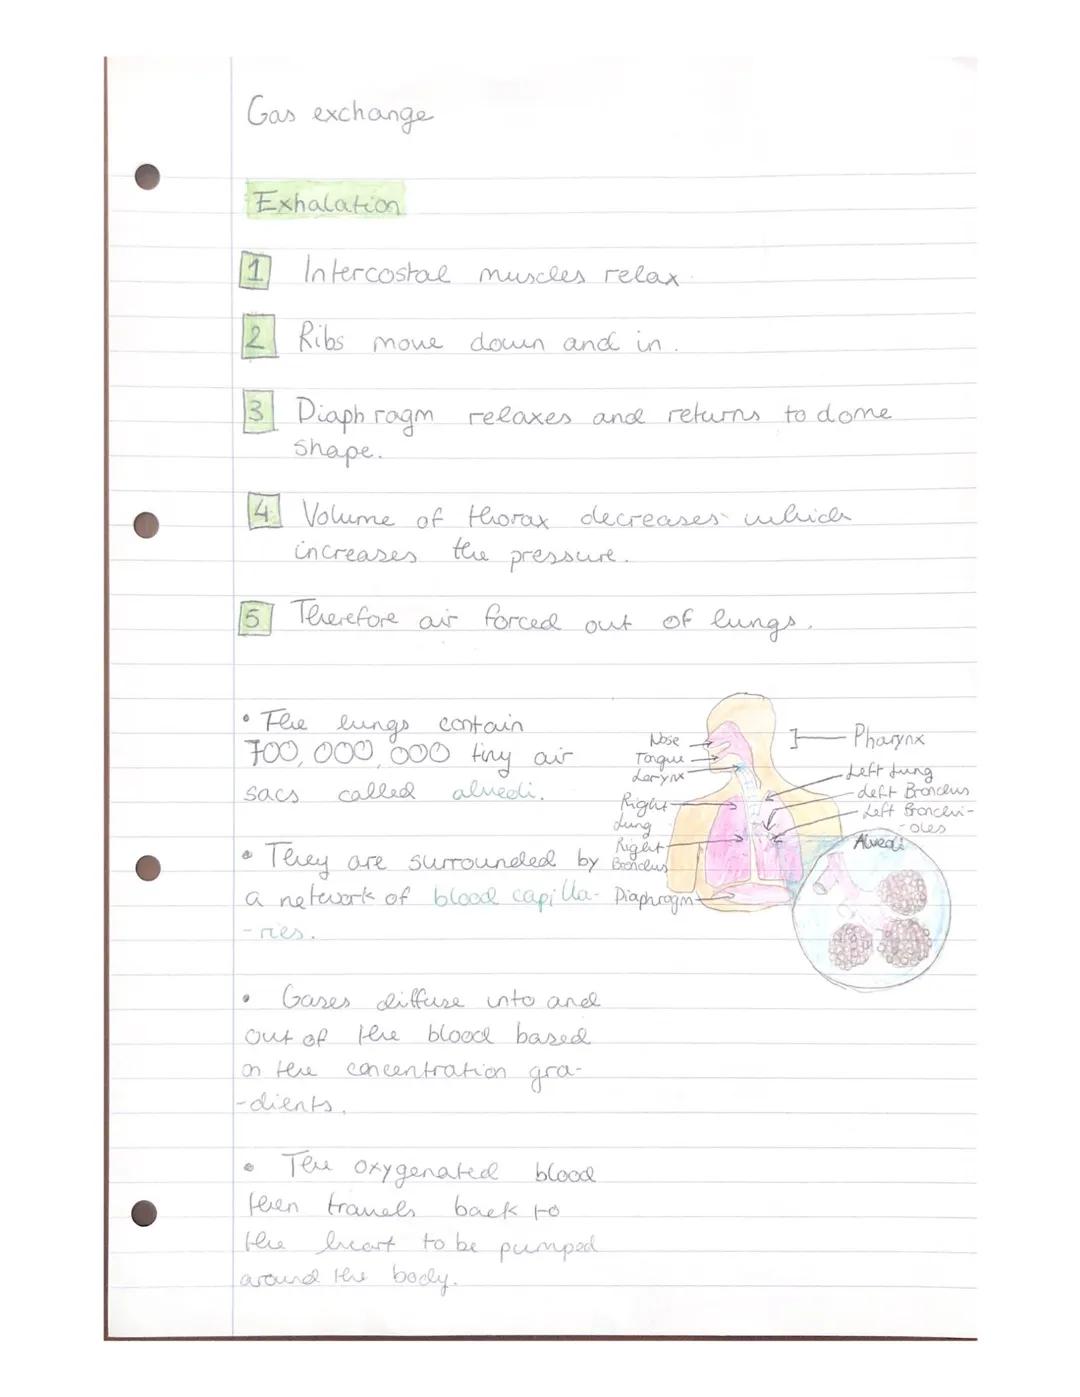 Gas exchange
Exhalation
1 Intercostal muscles relax.
2 Ribs move down and in.
3 Diaphragm relaxes and returns to dome
shape.
4 Volume of thorax decreases which
increases the pressure.
5 Therefore air forced out of lungs.
• The lungs contain
700,000,000 tiny air
sacs called alveoli.
• They are surrounded by
a network of blood capilla-
-ries.
• Gases diffuse into and
out of the blood based
on the concentration gra-
-dients.
• The oxygenated blood
then travels back to
the heart to be pumped
around the body.
Nose
Tongue
Larynx
Right
Lung
Right
Bronchus
Diaphragm
Pharynx
Left Lung
Left Bronchus
Left Bronchi-
-oles
Alveoli